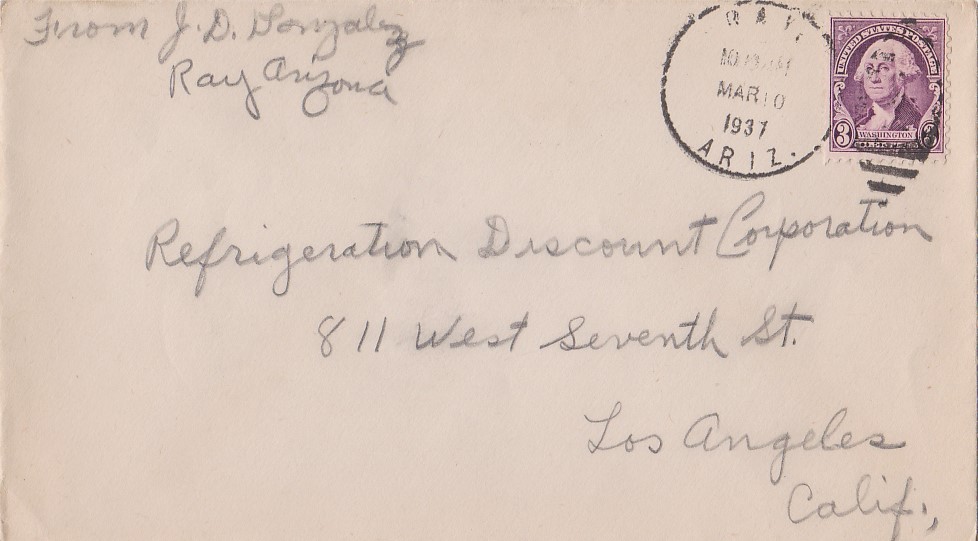 From J. D. Gonzalez
Ray Arizona
RAY,
MAR 10
1937
ARIZ.
UNITED STATES POSTAGE
3 WASHINGTON 3
Refrigeration Discount Corporation
811 West Seventh St.
Los Angeles
Calif.,